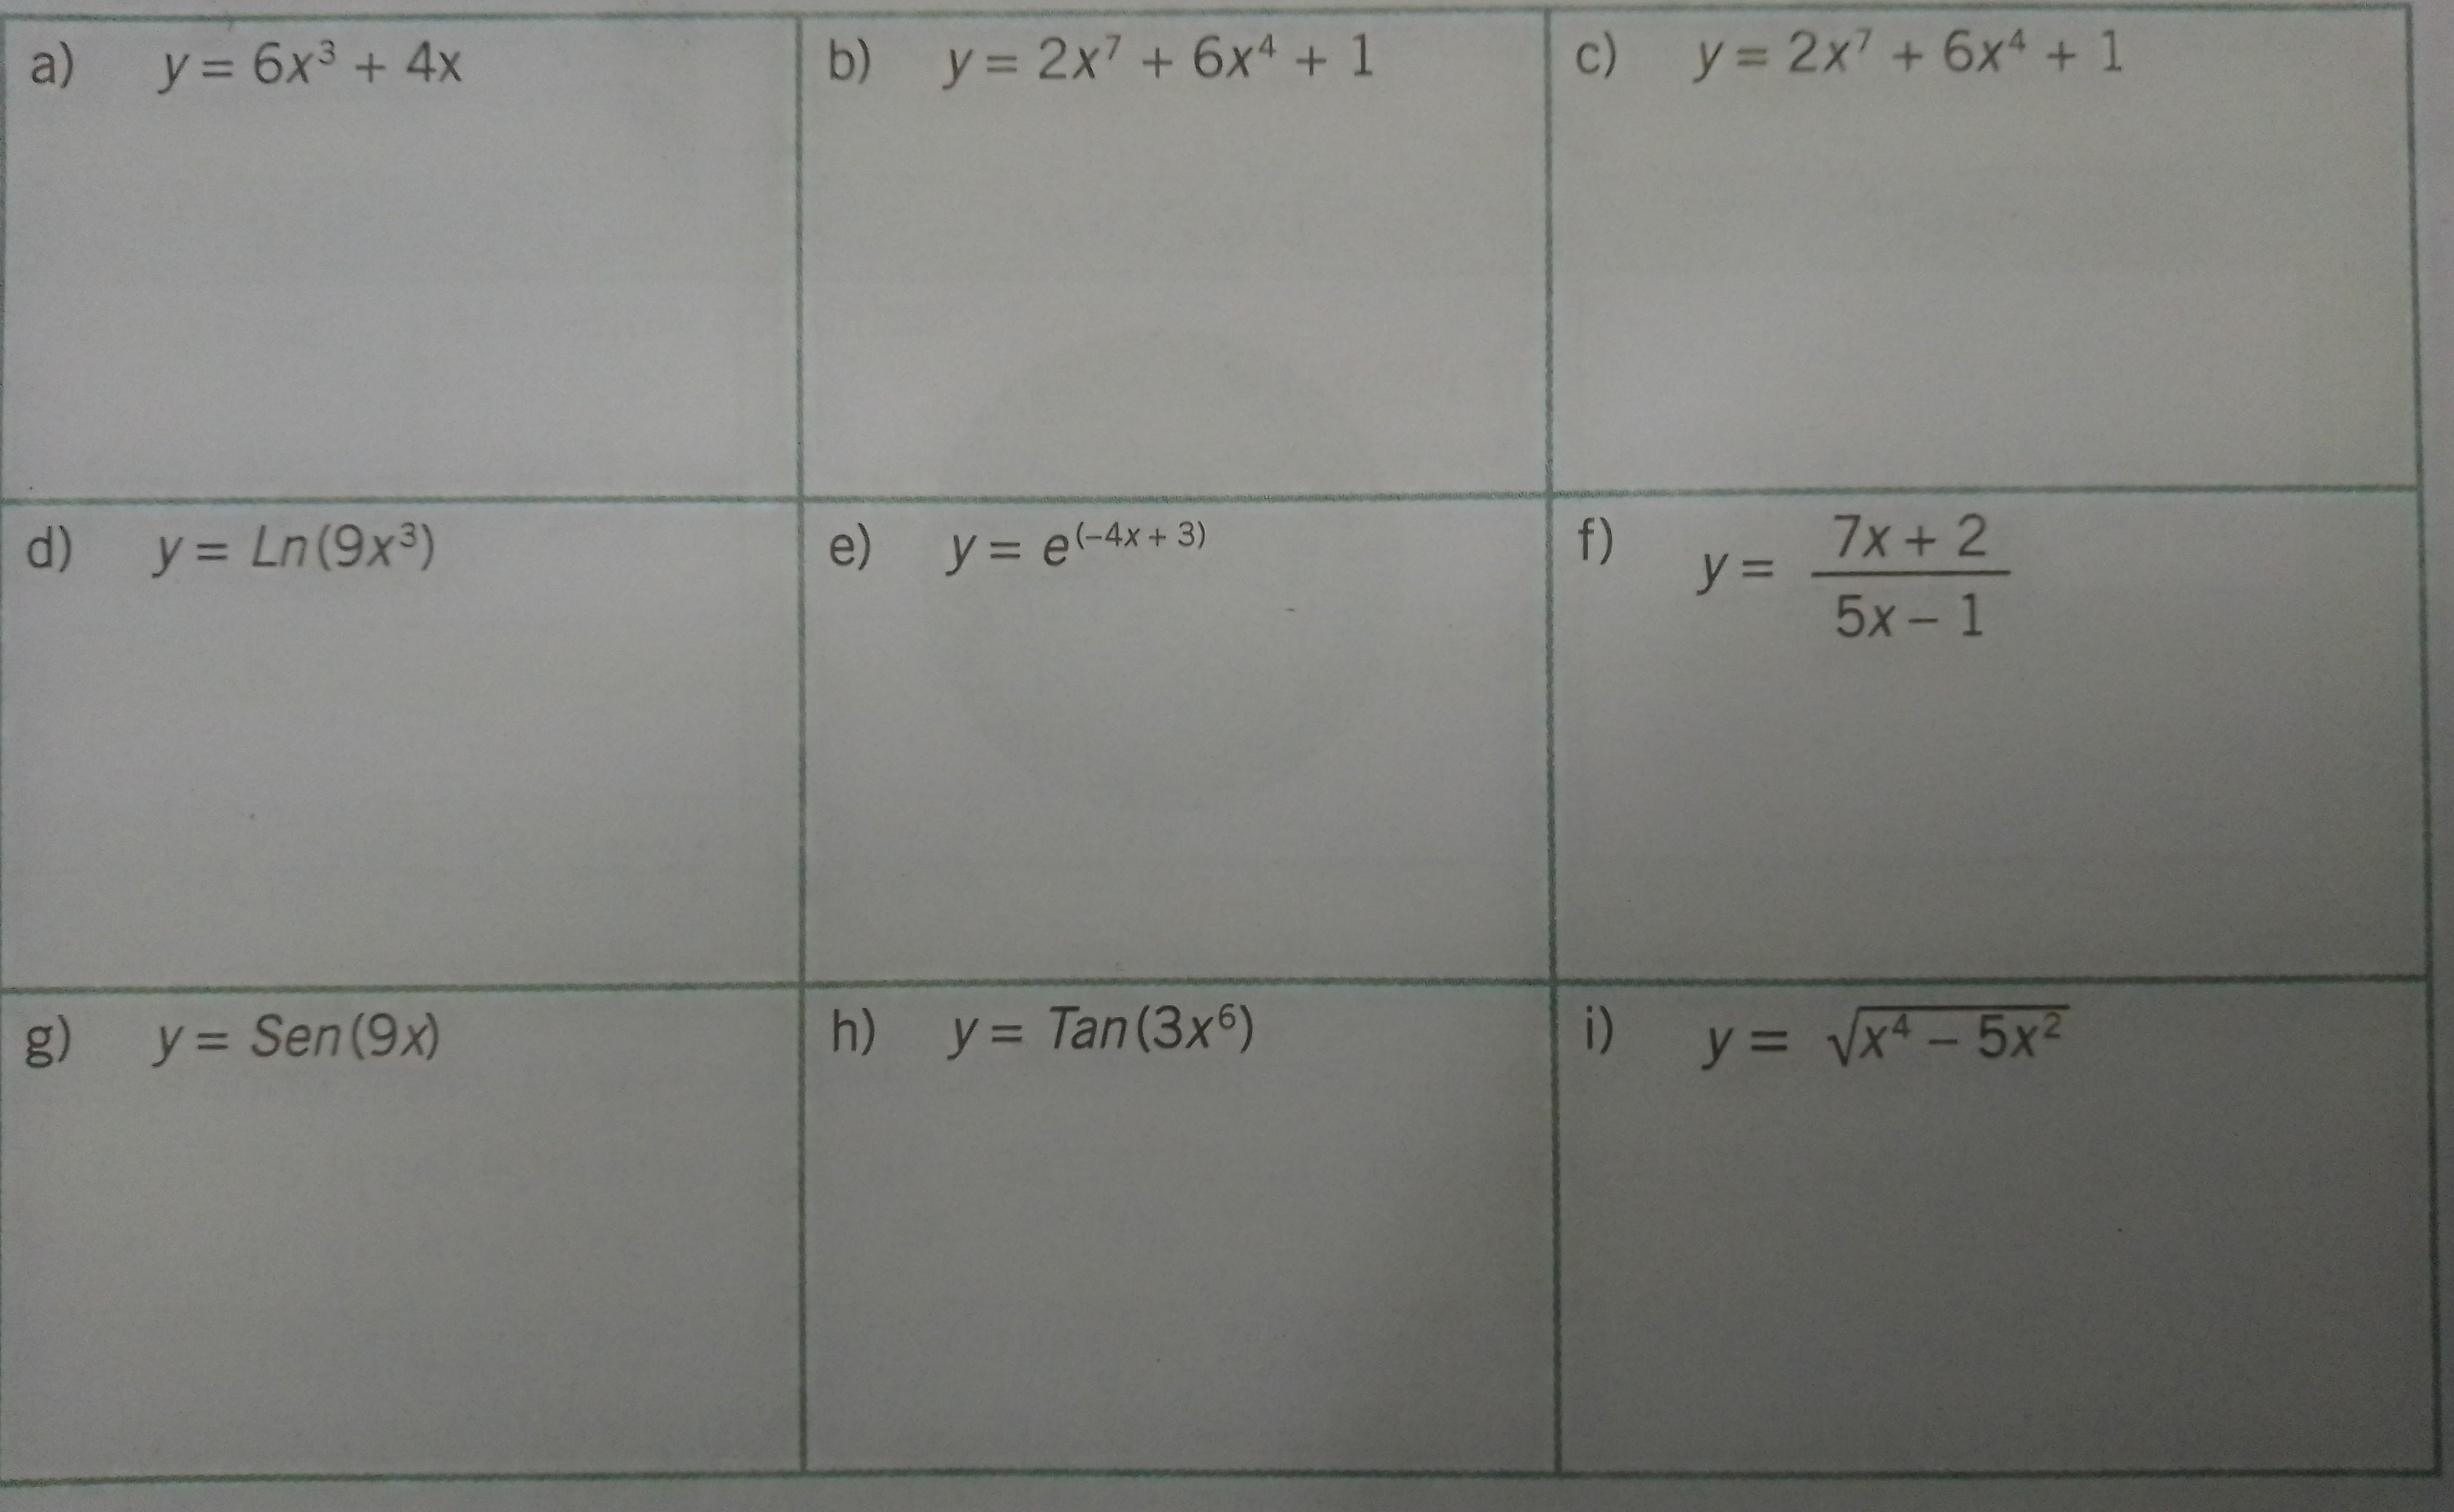 a) y = 6x³ + 4x
b) y = 2x⁷ + 6x⁴ + 1
c) y = 2x⁷ + 6x⁴ + 1
d) y = Ln(9x³)
e) y = e^(−4x + 3)
f) y = (7x + 2)/(5x − 1)
g) y = Sen(9x)
h) y = Tan(3x⁶)
i) y = √(x⁴ − 5x²)